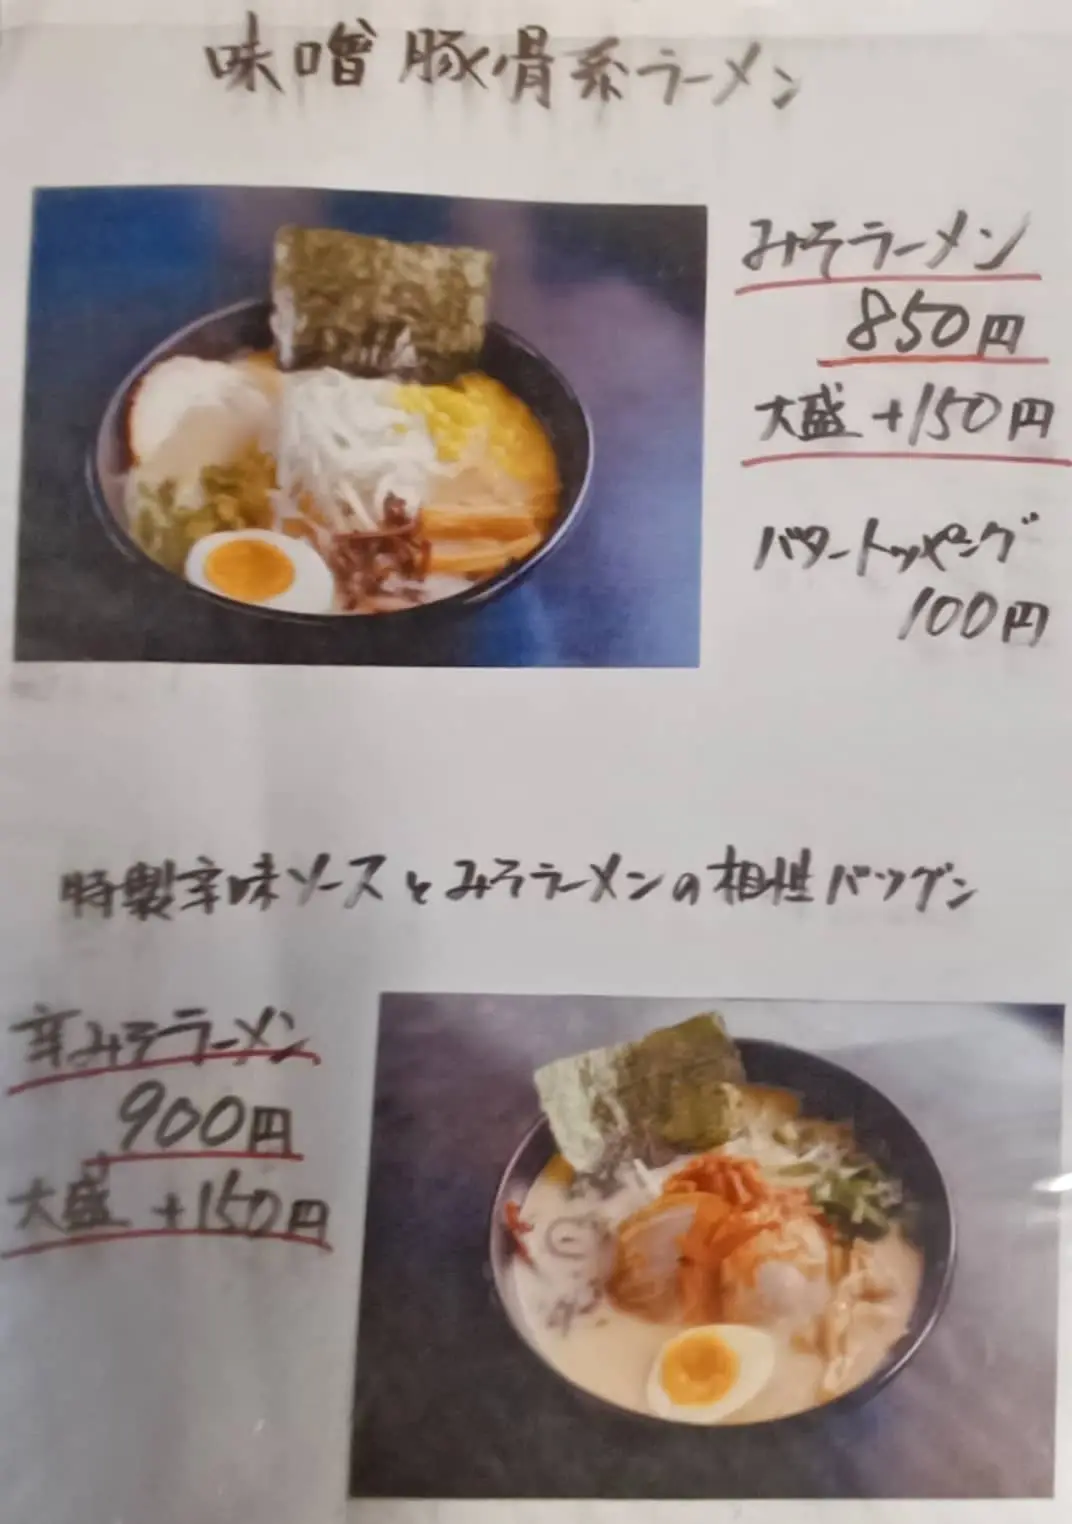 味噌豚骨系ラーメン
みそラーメン
850円
大盛 +150円
バタートッピング
100円
特製辛味ソースとみそラーメンの相性バツグン
辛みそラーメン
900円
大盛 +150円